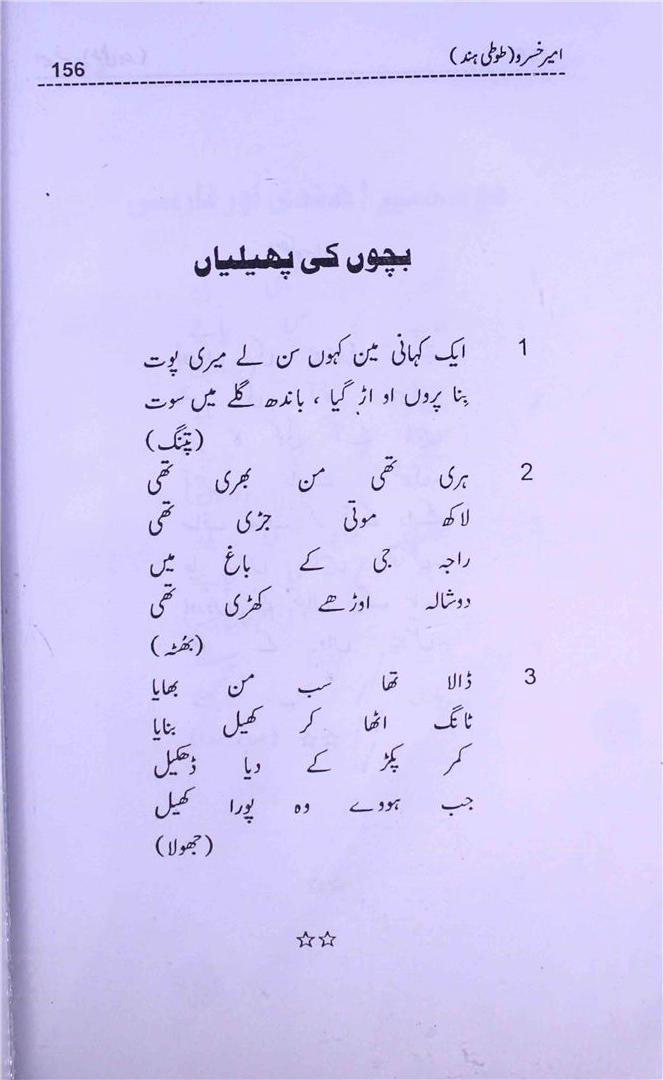 امیر خسرو (طوطیٔ ہند)
156
بچوں کی پھیلیاں
1 ایک کہانی مین کہوں سن لے میری پوت
بِنا پروں او اڑ گیا ، باندھ گلے میں سوت
(پتنگ)
2 ہری تھی من بھری تھی
لاکھ موتی جڑی تھی
راجہ جی کے باغ میں
دوشالہ اوڑھے کھڑی تھی
(بھُٹہ)
3 ڈالا تھا سب من بھایا
ٹانگ اٹھا کر کھیل بنایا
کمر پکڑ کے دیا ڈھکیل
جب ہووے وہ پورا کھیل
(جھولا)
☆☆